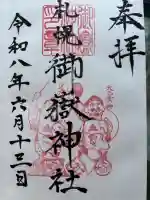 奉拝
札幌御嶽神社
令和八年六月十三日